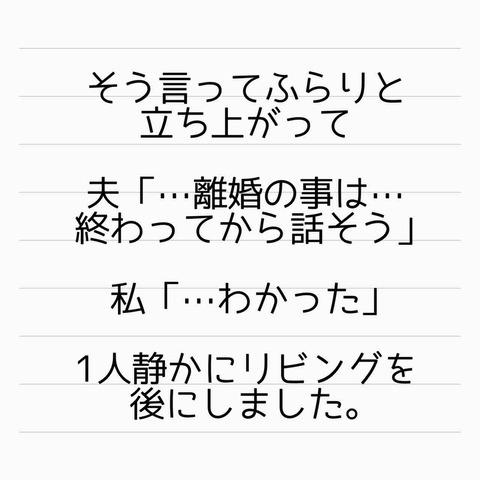 そう言ってふらりと
立ち上がって
夫「…離婚の事は…
終わってから話そう」
私「…わかった」
1人静かにリビングを
後にしました。